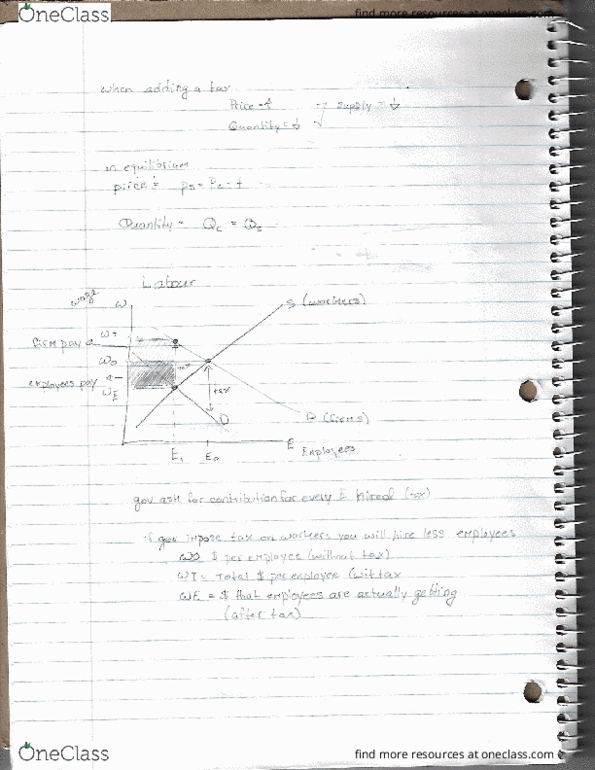 OneClass
find more resources at oneclass.com
when adding a tax
Price = ↑ → supply = ↓
Quantity = ↓
in equilibrium
price =
Quantity = Qc = Qs
Labour
wage
W
S (workers)
WT
firm pay
W0
employees pay
WE
tax
D
D (firms)
E1 E0 E Employees
gov ask for contribution for every E hired (tax)
if gov impose tax on workers you will hire less employees
W0 $ per employee (without tax)
WT = Total $ per employee (wit tax
WE = $ that employees are actually getting
(after tax)
OneClass
find more resources at oneclass.com